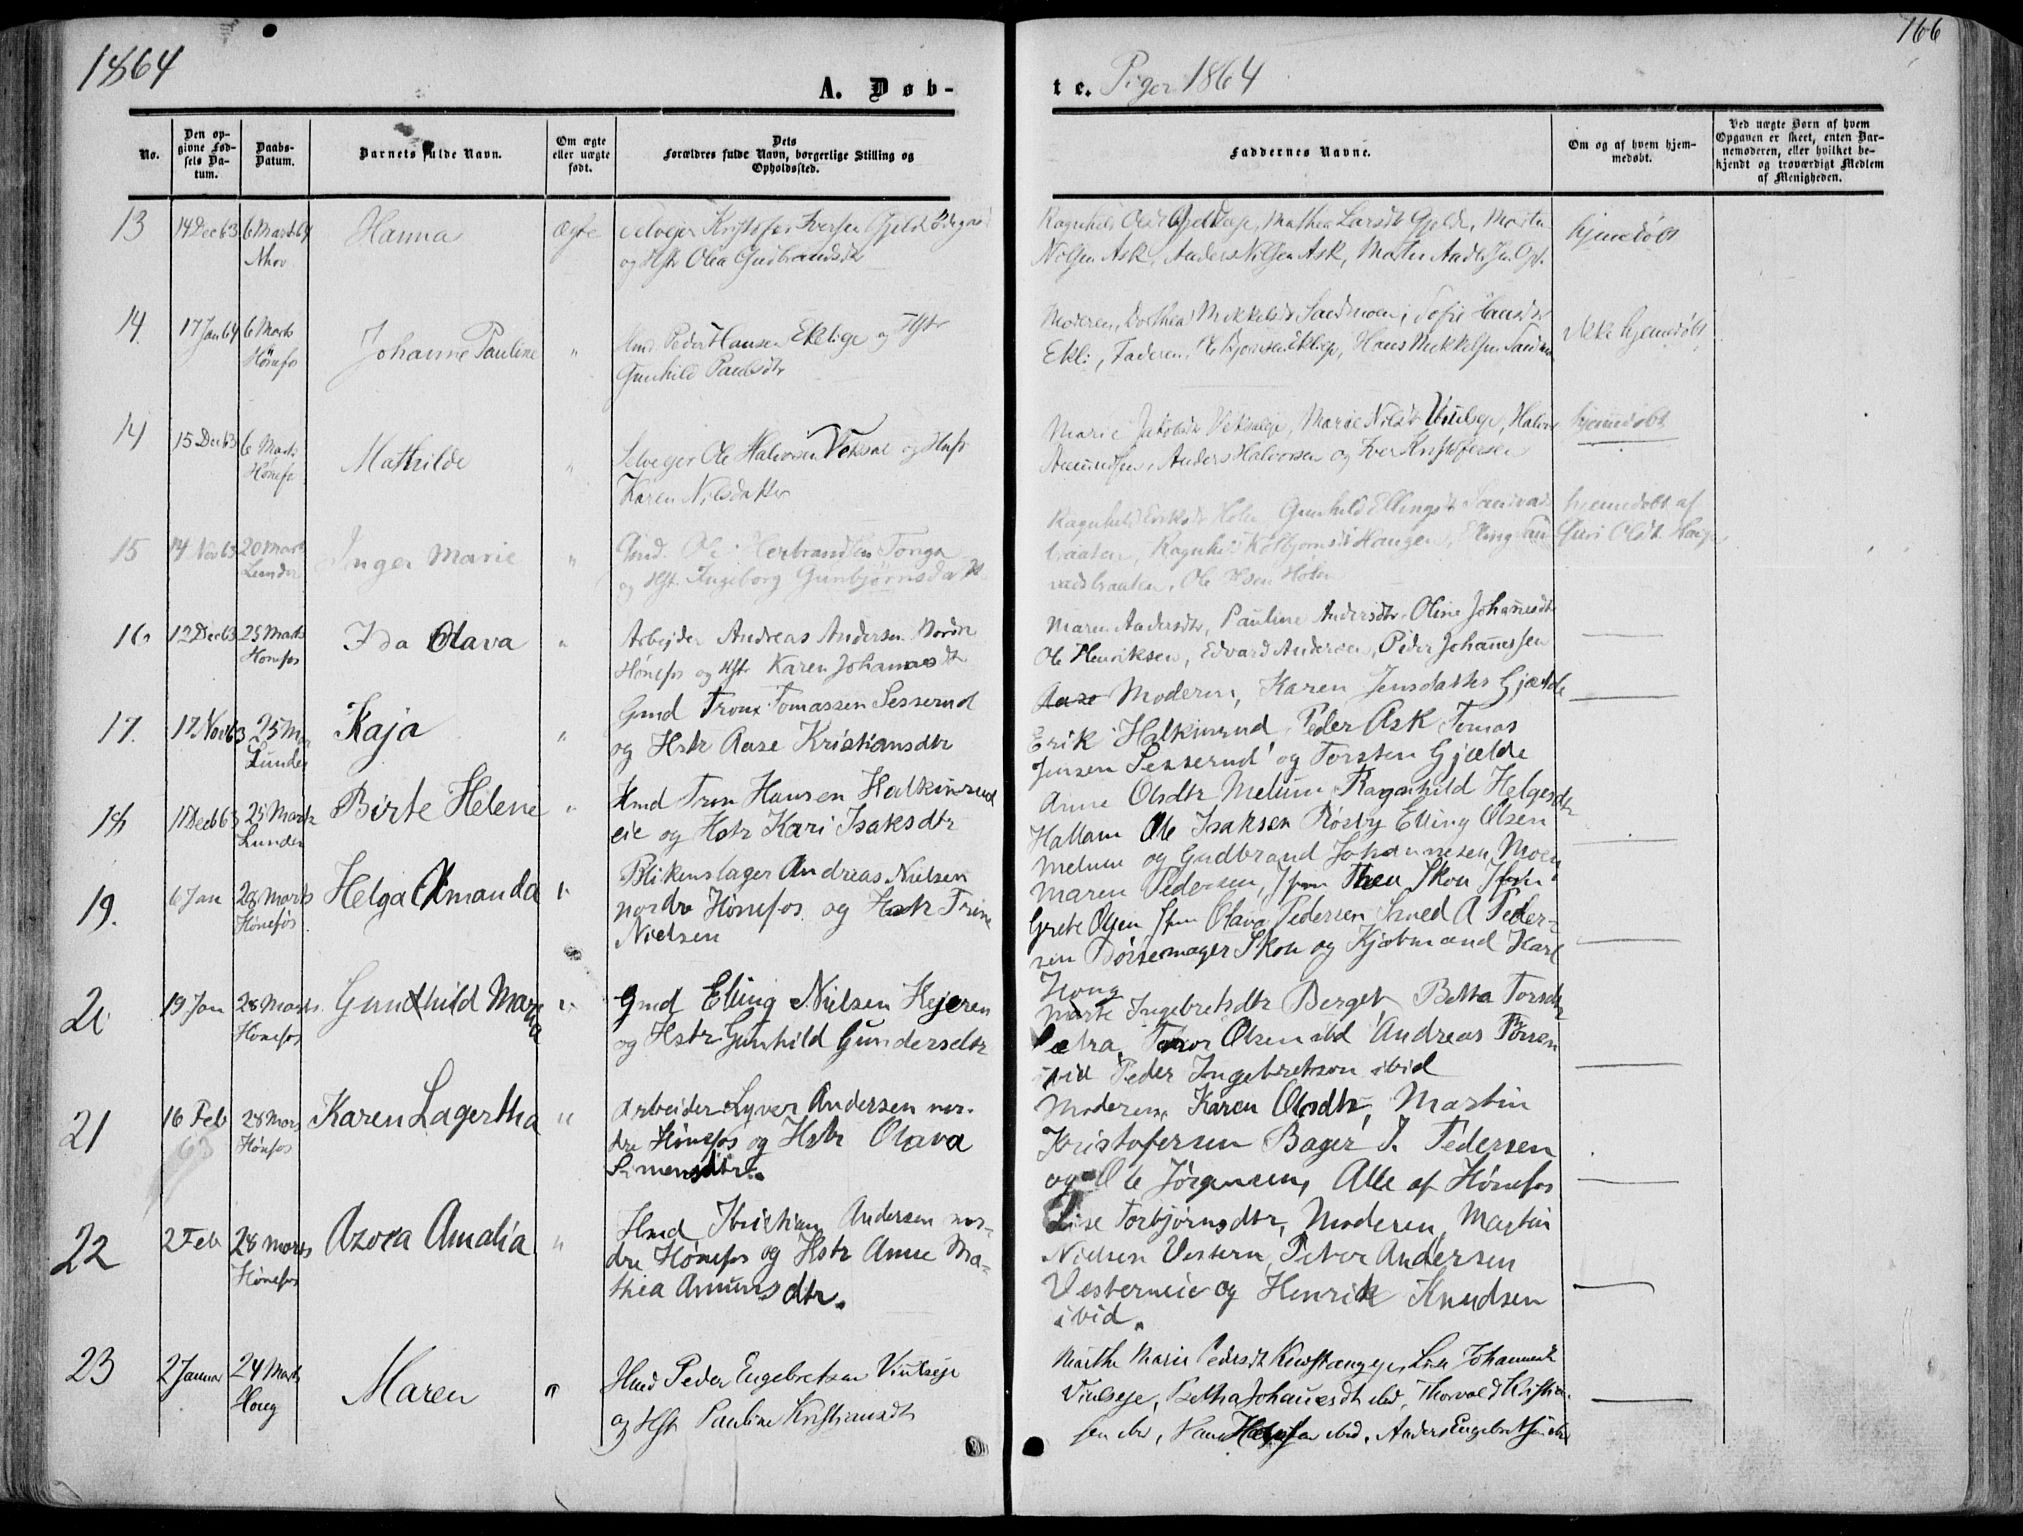 1864
A. Døb-
te. Piger 1864
166
No.
Den opgivne Fødsels Datum.
Daabs-Datum.
Barnets fulde Navn.
Om ægte eller uægte født.
Dets Forældres fulde Navn, borgerlige Stilling og Opholdssted.
Faddernes Navne.
Om og af hvem hjemmedøbt.
Ved uægte Børn af hvem Opgaven er skeet, enten Barnemoderen, eller hvilket bekjendt og troværdigt Medlem af Menigheden.
13
14 Dec 63
6 Marts 64
Hanna
ægte
Selveger Kristofer Iversen
og Hstr Olea Gudbrandsdtr
Nilsen Ask, Anders Nilsen Ask,
hjemedøbt
14
17 Jan 64
6 Marts
Hönefos
Johanne Pauline
"
Hmd. Peder Hansen Eklieje og Hstr
Gunhild Paulsdtr
Moderen, Dorthea Mikkelsdtr Sandmoen, Sofie Hansdtr
Ekli, Faderen, Hans Mikkelsen
ikke hjemedøbt
14
15 Dec 63
6 Marts
Hönefos
Mathilde
"
Selveger Ole Halvorsen Veksal og Hstr
Karen Nilsdatter
Marie Jakobsdtr Marie Nilsdtr Halvor
Amundsen, Anders Halvorsen og Iver Kristofersen
hjemmedøbt
15
14 Nov 63
20 Marts
Lunder
Inger Marie
"
Gmd. Ole Herbrandsen Tonga
og Hstr. Ingeborg Gunbjørnsdatter
Ragnhild Eriksdtr Holen, Gunhild Ellingsdtr
braaten, Ragnhild Kolbjornsdtr Haugen, Elling
Ole Olsen Holen
hjemmedøbt af
Guri Olsdtr
16
12 Dec 63
25 Marts
Hönefos
Ida Olava
"
Arbejder Andreas Andersen Nordre
Hönefos og Hstr Karen Johannesdtr
Maren Andersdtr, Pauline Andersdtr, Oline Johannesdtr
Ole Henriksen, Edvard Andersen, Peder Johannessen
17.
17 Nov 63
25 Mar
Lunder
Kaja
"
Gmd Tron Tomassen Sesserud
og Hstr Aase Kristiansdtr
Aase Moderen, Karen Jensdatter Gjælde
Erik Halkinrud Peder Ask Tomas
Jensen Sesserud og Torsten Gjælde
18
11 Deeb 63
25 Marts
Lunder
Birte Helene
"
Hmd Tron Hansen Halkinrud
eie og Hstr Kari Isaksdtr
Anne Olsdtr Melum Ragnhild Helgesdtr
Hallam Ole Isaksen Røsby Elling Olsen
Melum og Gudbrand Johannesen Moen
19.
6 Jan
28 Marts
Hönefos
Helga Amanda
"
Blikenslager Andreas Nielsen
nordre Hönefos og Hstr Trine
Nielsen
Maren Pedersen, Skou
Grete Olsen Olava Pedersen Smed A Peder-
sen Børsemager Skou og Kjøbmand Karl
Houg
20
19 Jan
28 Marts
Hönefos
Gunhild Maria
"
Gmd Elling Nielsen Hejeren
og Hstr Gunhild Gundersdtr
Marte Ingebretsdtr Berget Betta Torsdtr
Olsen ibid Andreas
ibid Peder Ingebretson ibid
21
16 Feb
63
28 Mars
Hönfos
Karen Lagertha
"
Arbeider Syver Andersen nor-
dre Hönefos og Hstr Olava
Simensdtr.
Moderen, Karen Olsdtr, Martin
Kristofersen Bager J. Pedersen
og Ole Jörgensen, Alle af Hönefos
22
2 Feb
28 Marts
Hönefos
Azora Amalia
"
Hmd Kristian Andersen nor-
dre Hönefos og Hstr Anne Ma-
thea Amunsdtr.
Lise Torbjörnsdtr, Moderen, Martin
Nielsen Vestern, Peter Andersen
Vesterneie og Henrik Knudsen
ibid.
23
2 Januar
24 Marts
Houg
Maren
"
Hmd Peder Engebretsen Viulseje
og Hstr Pauline Kristiansdtr
Marthe Marie Pedersdtr Lise Johannesdtr
Viulseje, Bertha Johannesdtr ibid, Thorvald Kristian-
sen ibid, Hans Hansen ibid, Anders Engebretsen ibid